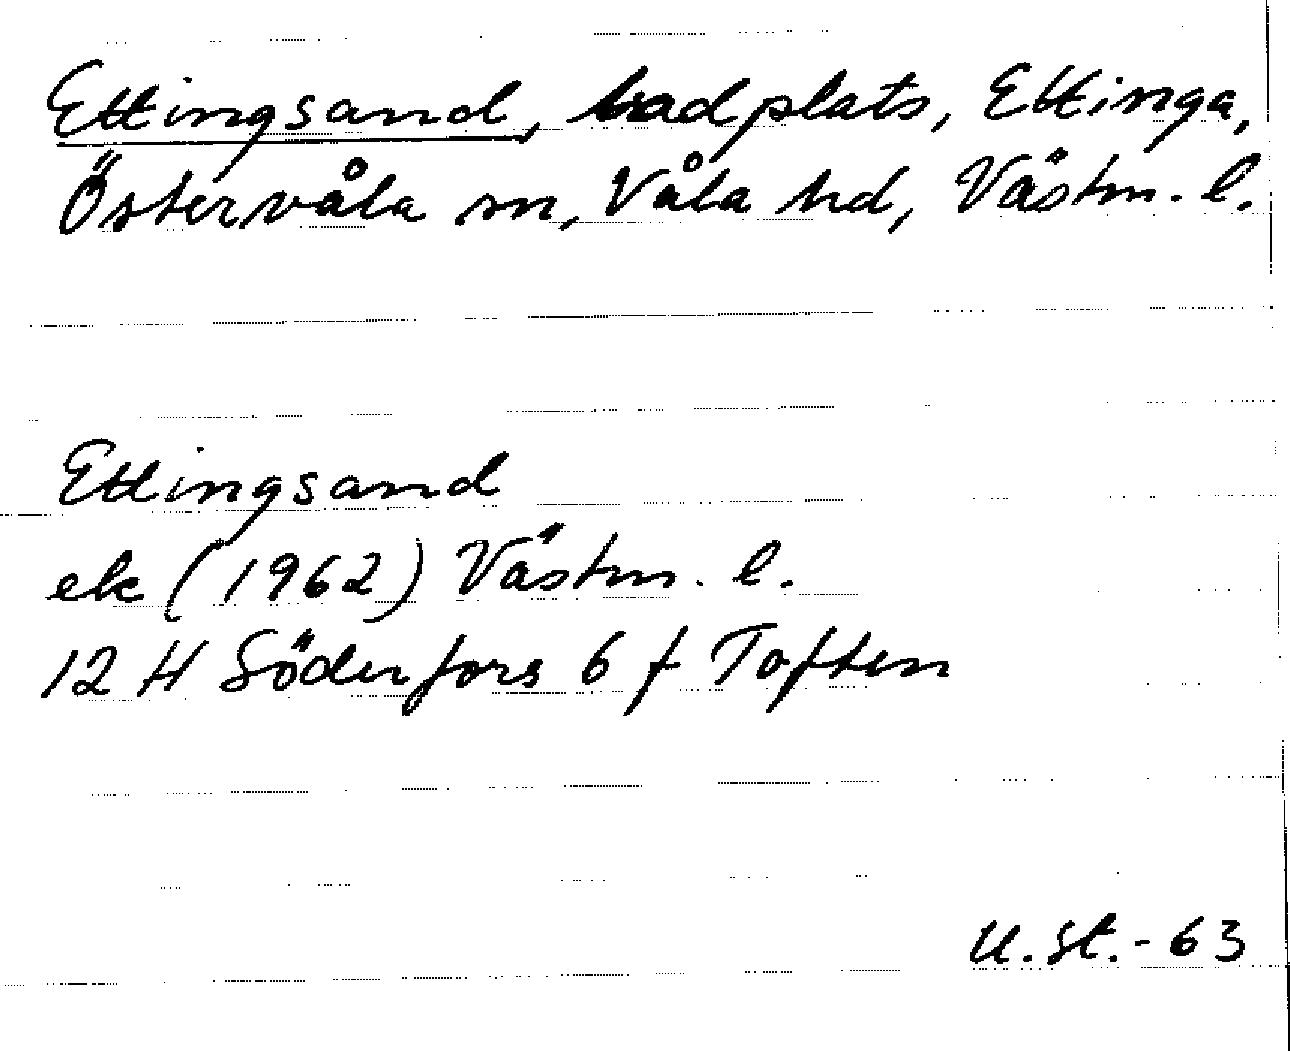 Ettingsand, badplats, Ettinga,
Östervåla sn, Våla hd, Västm. l.
Ettingsand
ek (1962) Västm. l.
12 H Söderfors 6 f Toften
U.St.-63